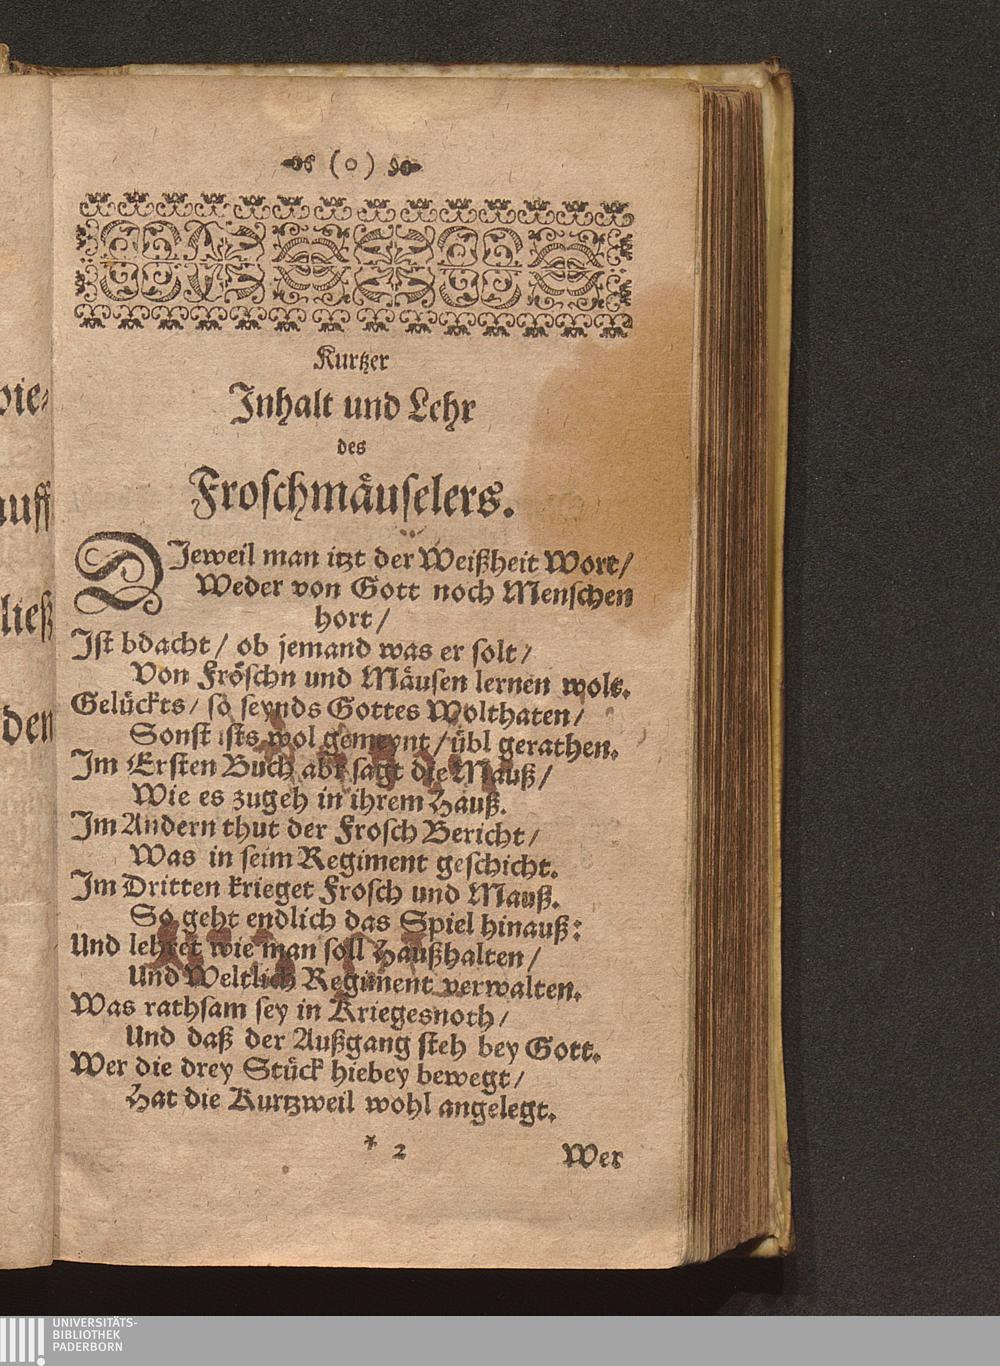 (o)
Kurtzer
Inhalt und Lehr
des
Froschmäuselers.
DIeweil man itzt der Weißheit Wort/
Weder von Gott noch Menschen
hort/
Ist bdacht/ ob jemand was er solt/
Von Fröschn und Mäusen lernen wolt.
Gelückts/ so seynds Gottes Wolthaten/
Sonst ists wol gemeynt/ übl gerathen.
Im Ersten Buch abr sagt die Mauß/
Wie es zugeh in ihrem Hauß.
Im Andern thut der Frosch Bericht/
Was in seim Regiment geschicht.
Im Dritten krieget Frosch und Mauß.
So geht endlich das Spiel hinauß:
Und lehret wie man soll Haußhalten/
Und Weltlich Regiment verwalten.
Was rathsam sey in Kriegesnoth/
Und daß der Außgang steh bey Gott.
Wer die drey Stück hiebey bewegt/
Hat die Kurtzweil wohl angelegt.
* 2
Wer
uff
ließ
den
UNIVERSITÄTS-
BIBLIOTHEK
PADERBORN